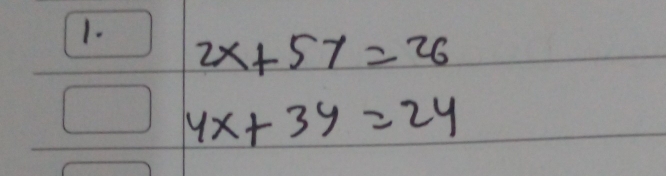 1.
2x+5y=26
4x+3y=24